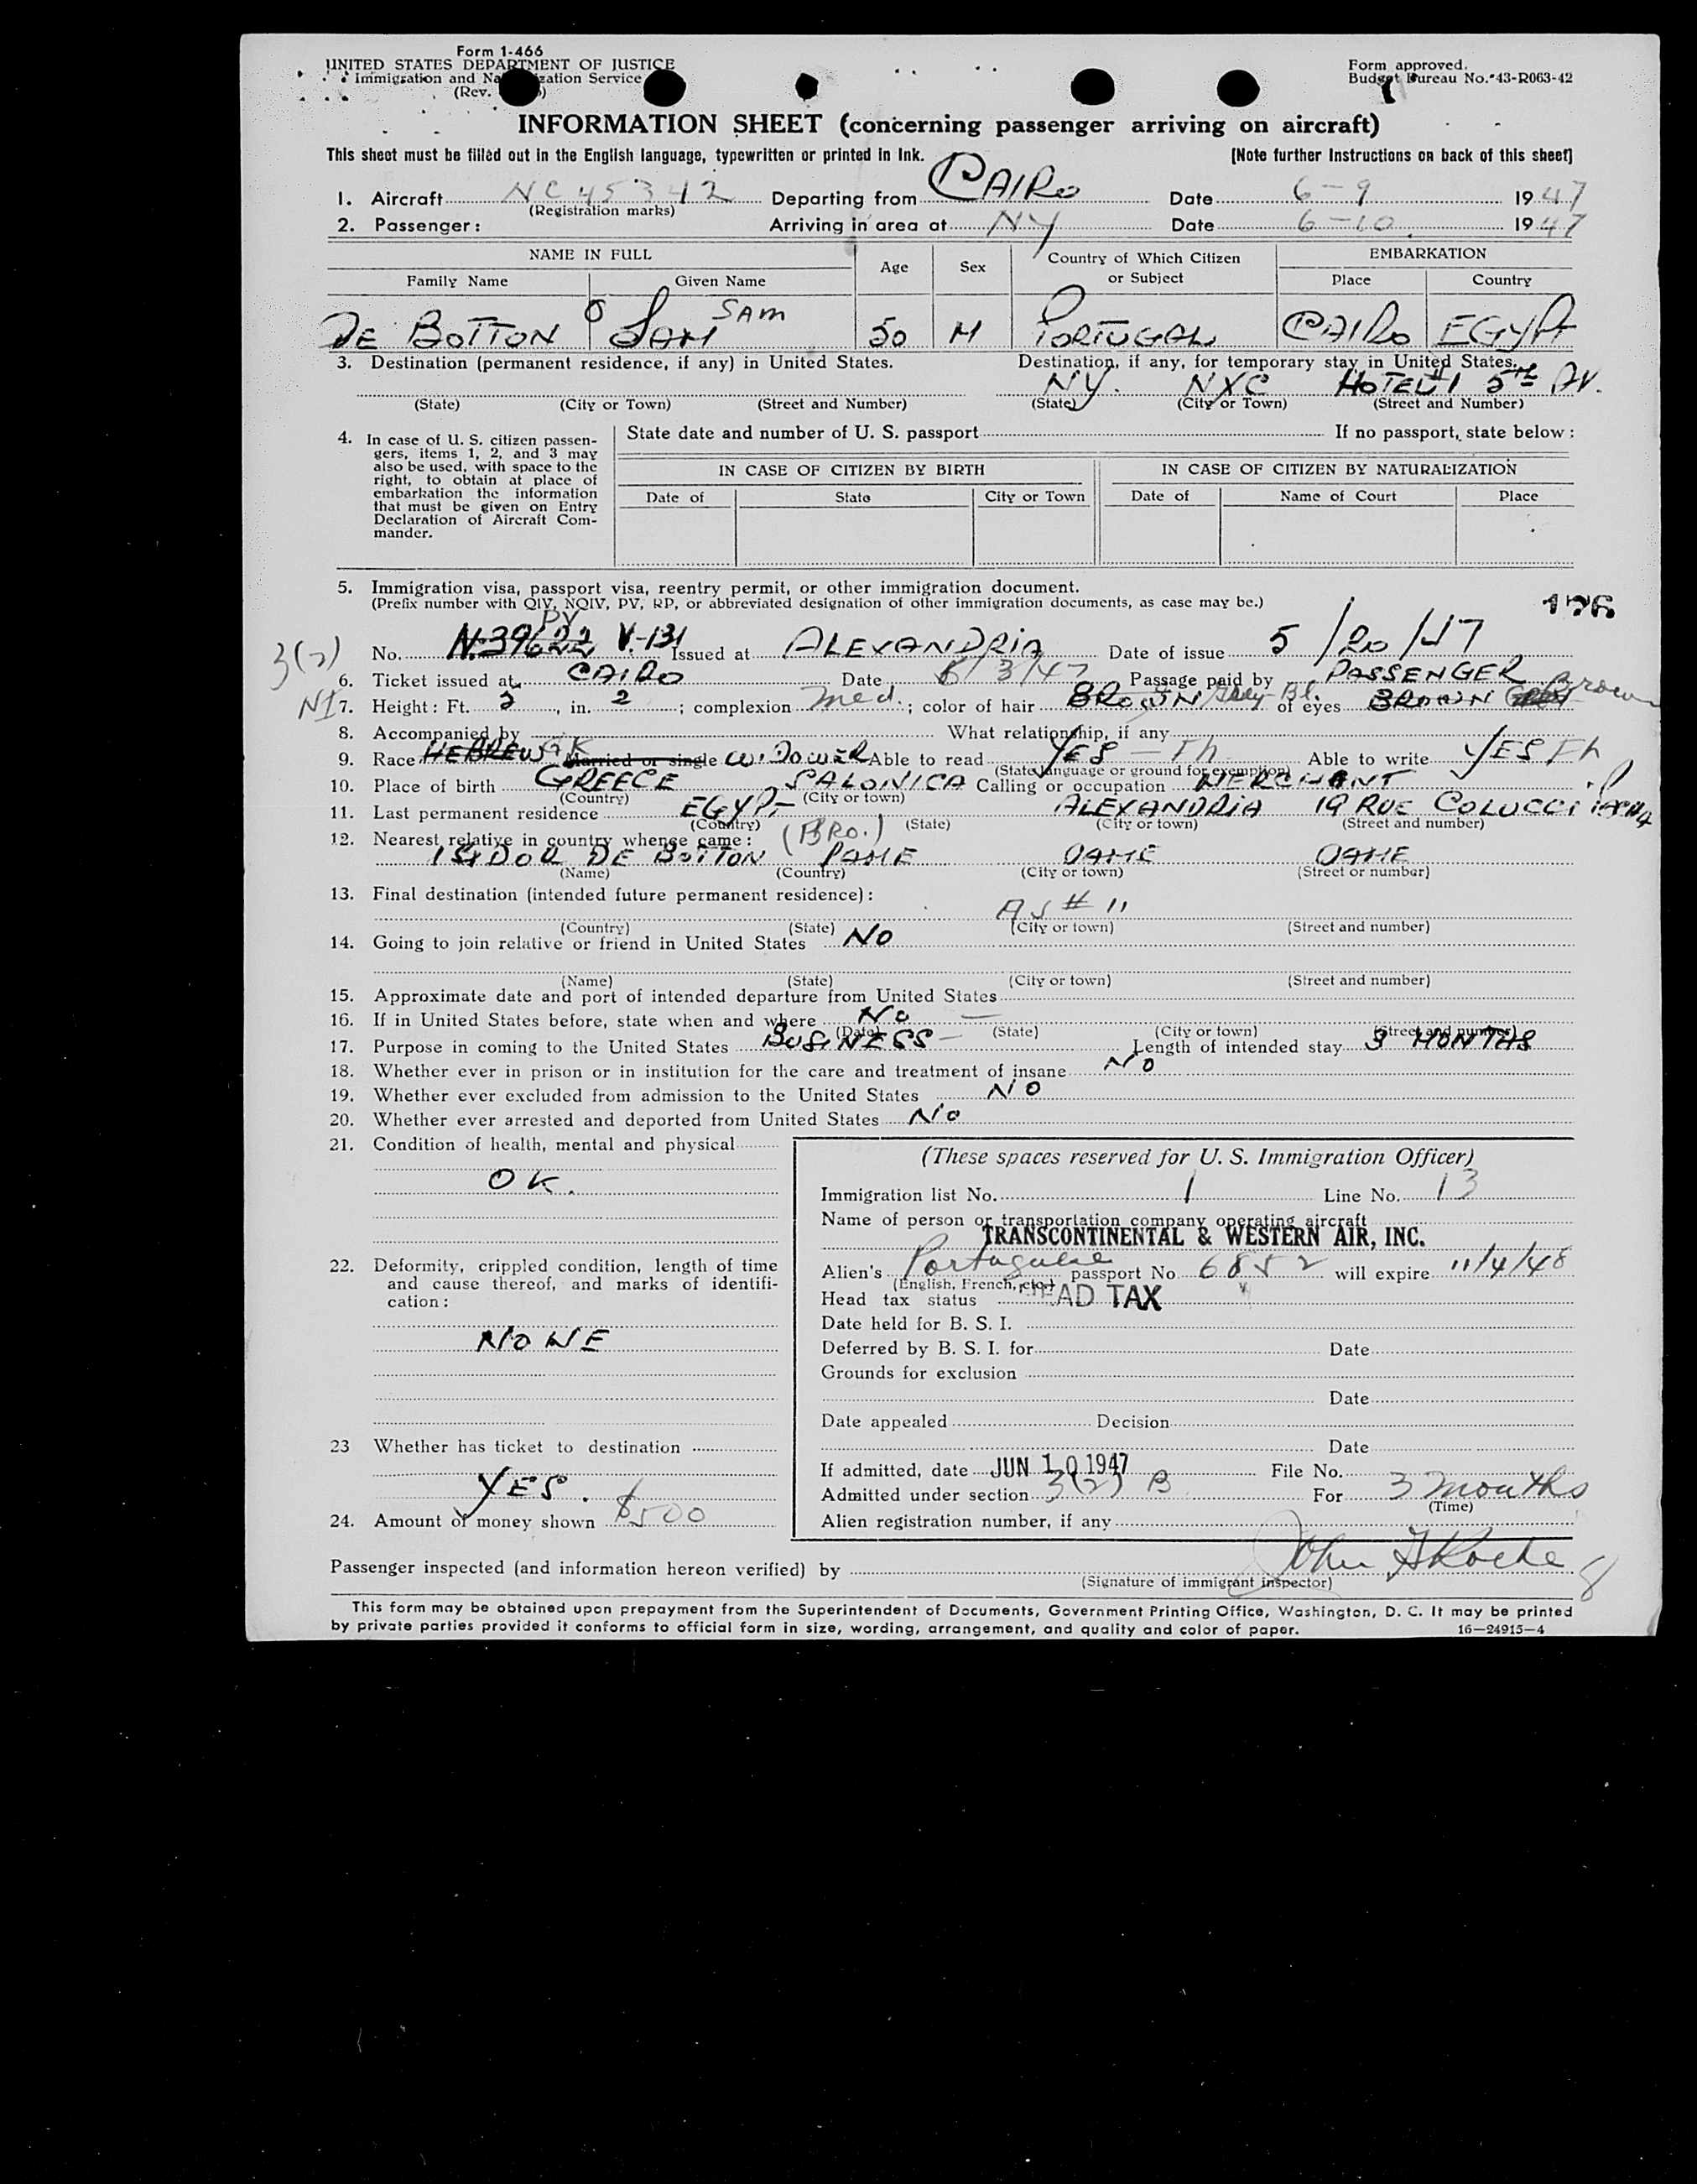 Form I-466
UNITED STATES DEPARTMENT OF JUSTICE
Immigration and Naturalization Service
(Rev.
Form approved.
Budget Bureau No. 43-R063-42
INFORMATION SHEET (concerning passenger arriving on aircraft)
This sheet must be filled out in the English language, typewritten or printed in ink. [Note further instructions on back of this sheet]
1. Aircraft NC 45342 Departing from CAIRO Date 6-9 1947
(Registration marks)
2. Passenger: Arriving in area at NY Date 6-10 1947
NAME IN FULL Age Sex Country of Which Citizen or Subject EMBARKATION
Family Name Given Name Place Country
DE BOTTON SAM SAM 50 M PORTUGAL CAIRO EGYPT
3. Destination (permanent residence, if any) in United States. Destination, if any, for temporary stay in United States.
NY. NYC HOTEL 1 5TH AV.
(State) (City or Town) (Street and Number) (State) (City or Town) (Street and Number)
4. In case of U. S. citizen passengers, items 1, 2, and 3 may also be used, with space to the right, to obtain at place of embarkation the information that must be given on Entry Declaration of Aircraft Commander.
State date and number of U. S. passport If no passport, state below:
IN CASE OF CITIZEN BY BIRTH IN CASE OF CITIZEN BY NATURALIZATION
Date of State City or Town Date of Name of Court Place
5. Immigration visa, passport visa, reentry permit, or other immigration document.
(Prefix number with QIV, NQIV, PV, RP, or abbreviated designation of other immigration documents, as case may be.)
176
PV
3(2) No. V-131 Issued at ALEXANDRIA Date of issue 5/20/47
6. Ticket issued at CAIRO Date 6/3/47 Passage paid by PASSENGER
NI 7. Height: Ft. 5, in. 2; complexion Med.; color of hair BROWN Grey-Bl. of eyes BROWN Brown
8. Accompanied by What relationship, if any
9. Race HEBREW GK Married or single WIDOWER Able to read YES - Fh Able to write YES Fh
(State language or ground for exemption)
10. Place of birth GREECE SALONICA Calling or occupation MERCHANT
(Country) (City or town)
11. Last permanent residence EGYPT ALEXANDRIA 19 RUE COLUCCI PACHA
(Country) (State) (City or town) (Street and number)
12. Nearest relative in country whence came: (BRO.)
ISIDOR DE BOTTON SAME SAME SAME
(Name) (Country) (City or town) (Street or number)
13. Final destination (intended future permanent residence):
AS # 11
(Country) (State) (City or town) (Street and number)
14. Going to join relative or friend in United States NO
(Name) (State) (City or town) (Street and number)
15. Approximate date and port of intended departure from United States
16. If in United States before, state when and where NO
(Date) (State) (City or town) (Street and number)
17. Purpose in coming to the United States BUSINESS Length of intended stay 3 MONTHS
18. Whether ever in prison or in institution for the care and treatment of insane NO
19. Whether ever excluded from admission to the United States NO
20. Whether ever arrested and deported from United States NO
21. Condition of health, mental and physical
OK.
22. Deformity, crippled condition, length of time and cause thereof, and marks of identification:
NONE
23 Whether has ticket to destination
YES.
24. Amount of money shown $500
(These spaces reserved for U. S. Immigration Officer)
Immigration list No. 1 Line No. 13
Name of person or transportation company operating aircraft
TRANSCONTINENTAL & WESTERN AIR, INC.
Alien's Portuguese passport No. 6852 will expire 11/4/48
(English, French, etc.)
Head tax status HEAD TAX
Date held for B. S. I.
Deferred by B. S. I. for Date
Grounds for exclusion
Date
Date appealed Decision
Date
If admitted, date JUN 10 1947 File No.
Admitted under section 3(2) B For 3 months
(Time)
Alien registration number, if any
Passenger inspected (and information hereon verified) by John
(Signature of immigrant inspector)
This form may be obtained upon prepayment from the Superintendent of Documents, Government Printing Office, Washington, D. C. It may be printed
by private parties provided it conforms to official form in size, wording, arrangement, and quality and color of paper. 16—24915-4